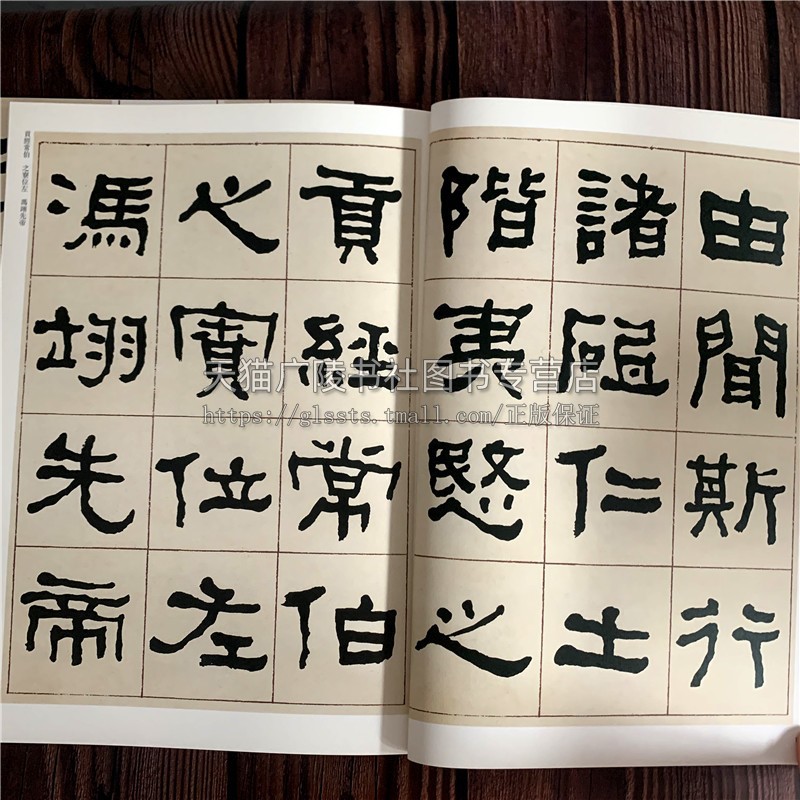 由聞斯行
諸仁士
階夷愍之
貢經常伯
之寮位左
馮翊先帝
貢經常伯 之寮位左 馮翊先帝
天猫广陵书社图书专营店
https://glssts.tmall.com/正版保证